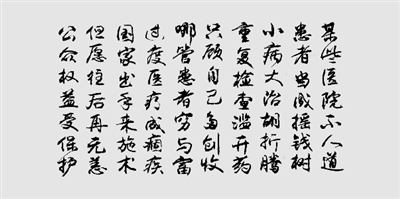 某些医院不人道
患者当成摇钱树
小病大治胡折腾
重复检查滥开药
只顾自己多创收
哪管患者穷与富
过度医疗成痼疾
国家出手来施术
但愿往后再无恙
公众权益受保护